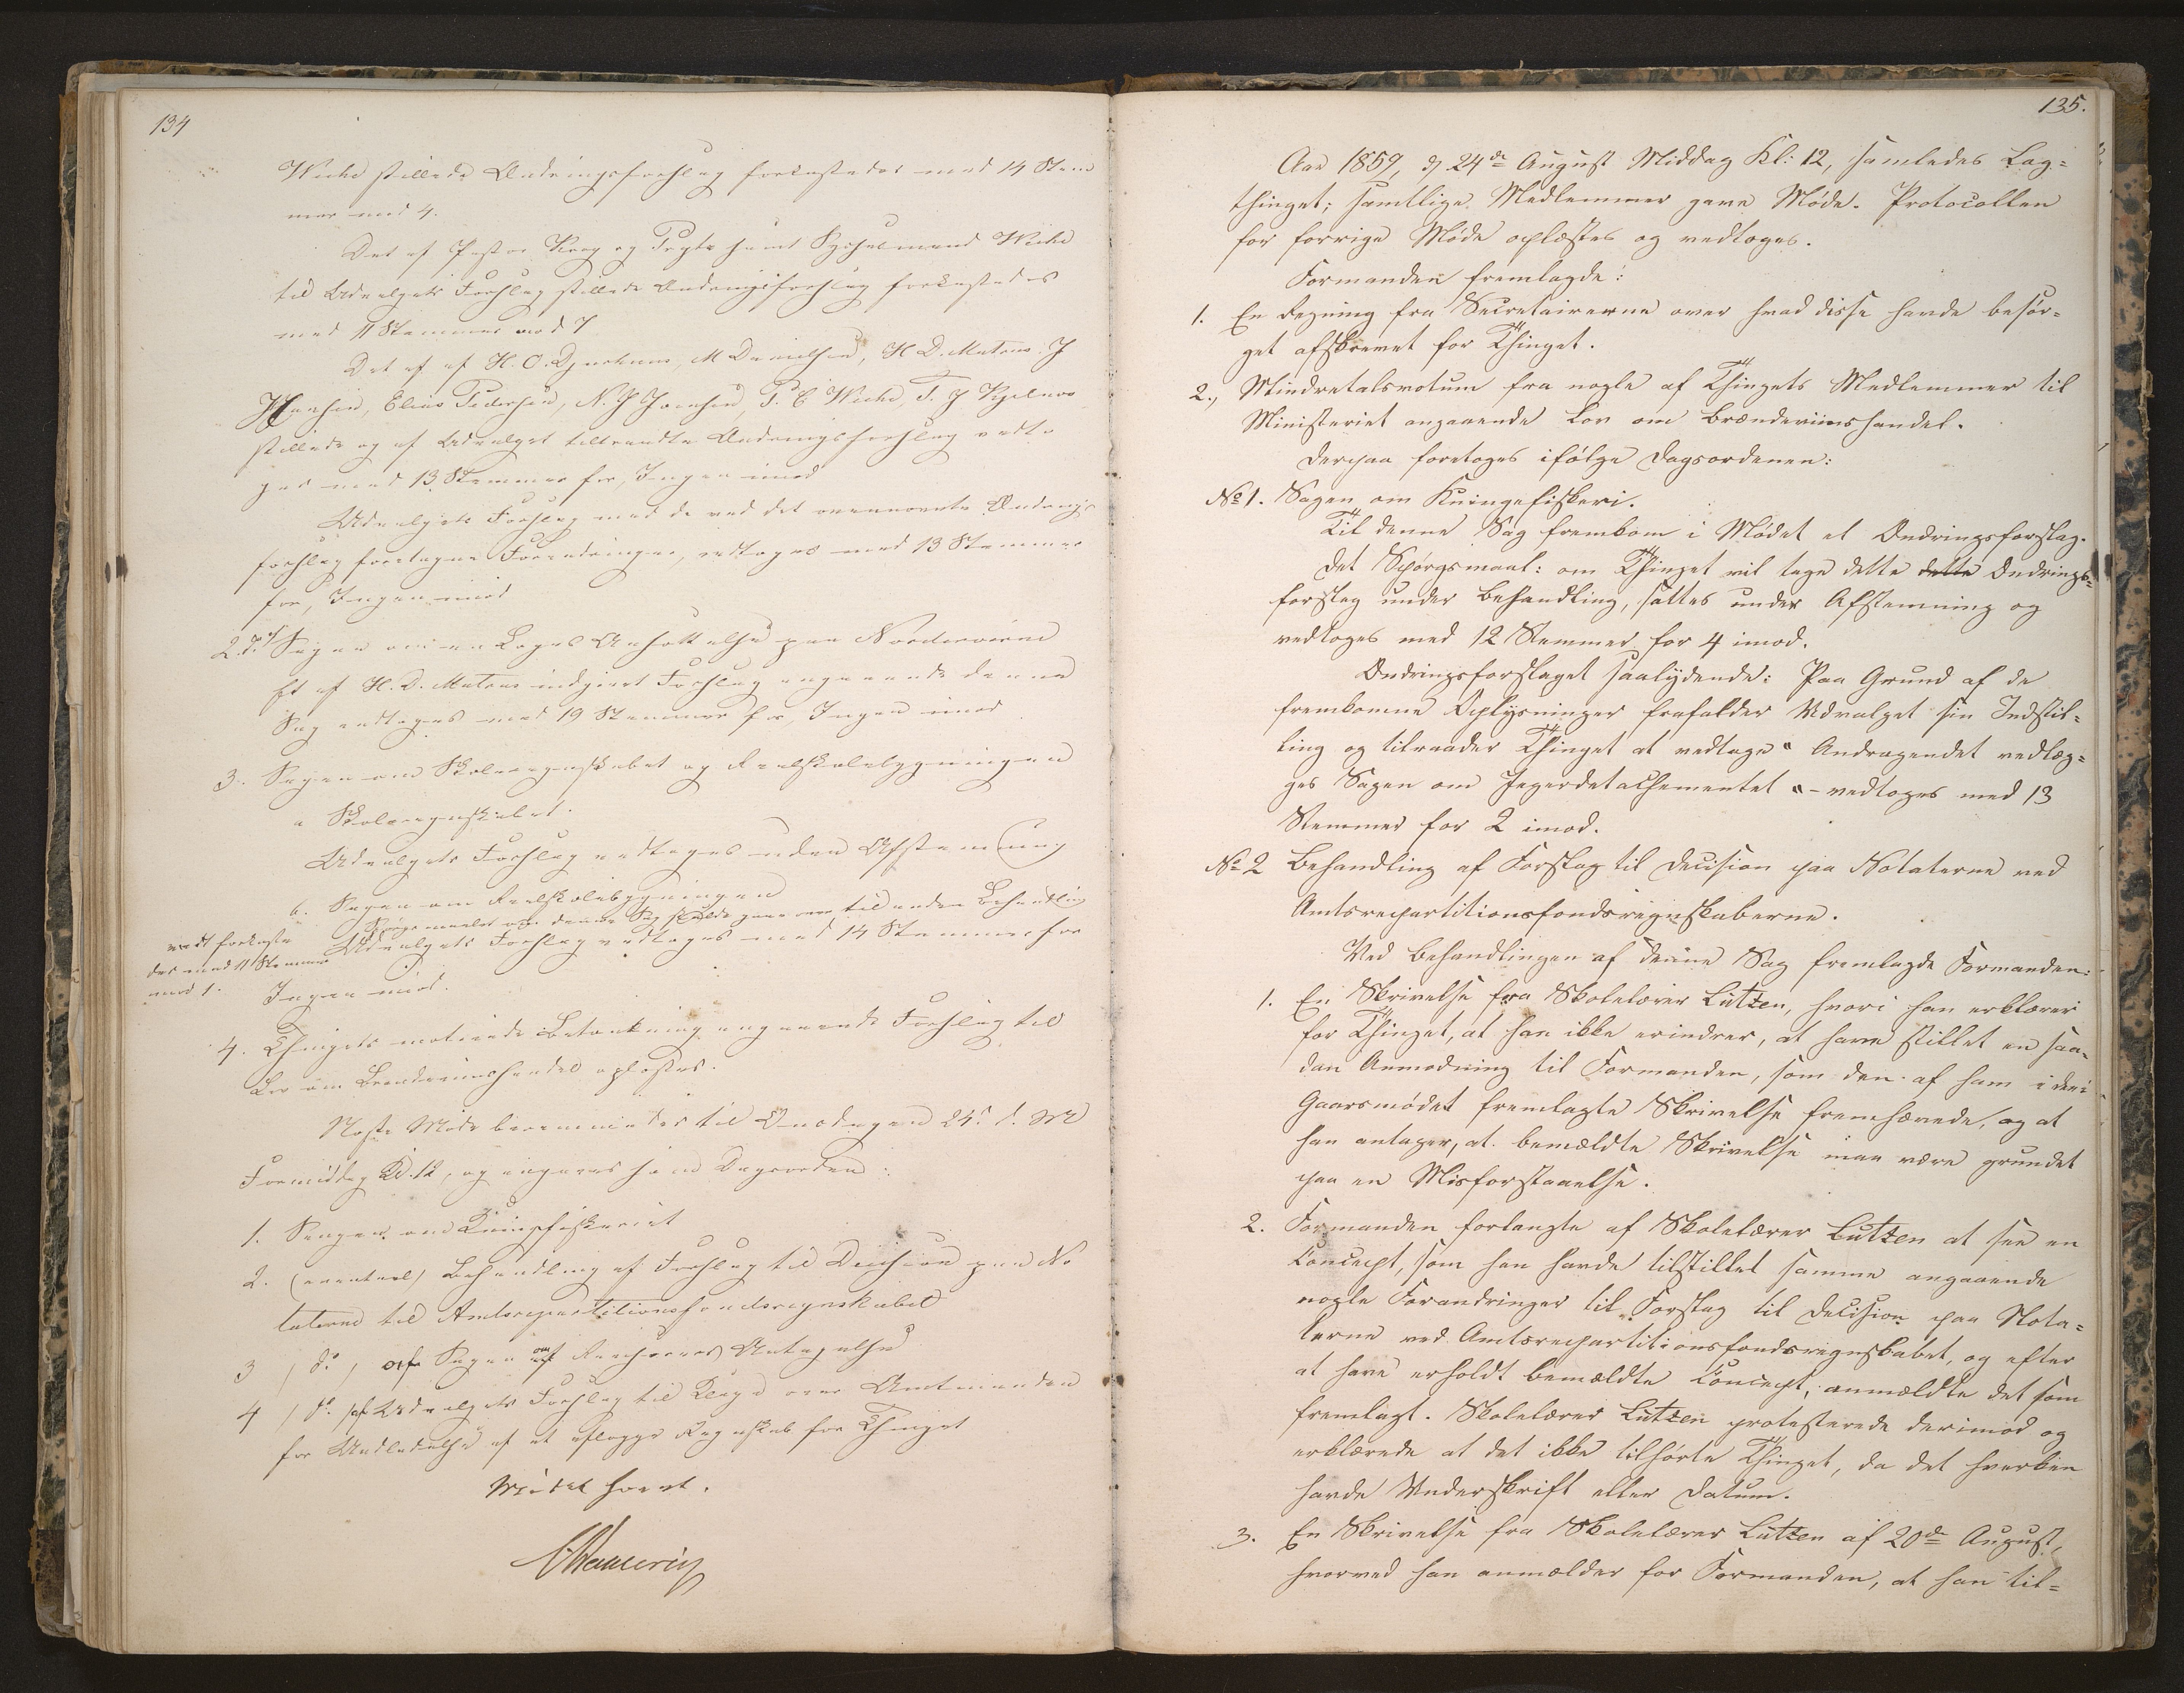 134
Weihe stillede Ændringsforslag forkastedes med 14 Stem
mer mod 4.
Det af Pastor Krog og Provst samt Sysselmand Weihe
til Udvalgets Forslag stillede Ændringsforslag forkastedes
med 11 Stemmer mod 7
Det af af H. O. Djurhuus, M Danielsen, H D. Matras, J
Hansen, Elias Pedersen, N. J Joensen, P. C Weihe, T. J
stillede og af Udvalget tiltraadte Ændringsforslag vedto
ges med 13 Stemmer for, Ingen imod
Udvalgets Forslag med de ved det ovennævnte Ændrings
forslag foretagne Forandringer, vedtoges med 13 Stemmer
for, Ingen imod
2. Sagen om en Læges Ansættelse paa Norderøerne
Et af H. D. Matras indgivet Forslag angaaende denne
Sag vedtoges med 19 Stemmer for, Ingen imod
3. Sagen om Skoleregnskabet og Realskolebygningen
a Skoleregnskabet.
Udvalgets Forslag vedtoges uden Afstemning
b. Sagen om Realskolebygningen
Spörgsmaalet om denne Sag skulde gaae over til anden Behandling
vedt forkaste
des med 11 Stemmer
mod 1.
Udvalgets Forslag vedtoges med 14 Stemmer for
Ingen imod.
4. Thingets motiverede Betænkning angaaende Forslag til
Lov om Brændeviinshandel oplæstes.
Næste Møde berammedes til Onsdagen 24de d. M
Formiddag Kl. 12, og angaves som Dagsorden:
1. Sagen om Kuingefiskeriet
2. (eventuel) Behandling af Forslag til Decision paa No
taterne til Amtsrepartitionsfondsregnskabet
3 / do / Sagen om Antagelse
4 / do / af Udvalgets Forslag til Klage over Amtmanden
for Undladelse af at aflægge Regnskab for Thinget
Mödet hævet.
135.
Aar 1859, d 24de August Middag Kl: 12, samledes Lag=
thinget; samtlige Medlemmer gave Møde. Protocollen
for forrige Møde oplæstes og vedtoges.
Formanden fremlagde:
1. En Regning fra Secretairerne over hvad disse havde besør=
get afskrevet for Thinget.
2., Mindretalsvotum fra nogle af Thingets Medlemmer til
Ministeriet angaaende Lov om Brændeviinshandel.
Derpaa foretoges ifølge Dagsordenen:
No 1. Sagen om Kuingefiskeri.
Til denne Sag fremkom i Mødet et Ændringsforslag.
Det Spørgsmaal: om Thinget vil tage dette dette Ændrings=
forslag under Behandling, sattes under Afstemning og
vedtoges med 12 Stemmer for 4 imod.
Ændringsforslaget saalydende: Paa Grund af de
fremkomne Oplysninger frafalder Udvalget sin Indstil=
ling og tilraader Thinget at vedtage " Andragendet vedlæg=
ges Sagen om Jegerdetachementet " - vedtoges med 13
Stemmer for 2 imod.
No 2 Behandling af Forslag til Decision paa Notaterne ved
Amtsrepartitionsfondsregnskaberne.
Ved Behandlingen af denne Sag fremlagde Formanden:
1. En Skrivelse fra Skolelærer Lützen, hvori han erklærer
for Thinget, at han ikke erindrer, at have stillet en saa=
dan Anmodning til Formanden, som den af ham i den i
Gaarsmødet fremlagte Skrivelse fremhævede, og at
han antager, at bemældte Skrivelse maa være grundet
paa en Misforstaaelse.
2. Formanden forlangte af Skolelærer Lutzen at see en
Concept, som han havde tilstillet samme angaaende
nogle Forandringer til Forslag til Decision paa Nota=
terne ved Amtsrepartitionsfondsregnskabet, og efter
at have erholdt bemældte Concept, anmældte det som
fremlagt. Skolelærer Lutzen protesterede derimod og
erklærede at det ikke tilhørte Thinget, da det hverken
havde Underskrift eller Datum.
3. En Skrivelse fra Skolelærer Lützen af 20de August,
hvorved han anmelder for Formanden, at han til=